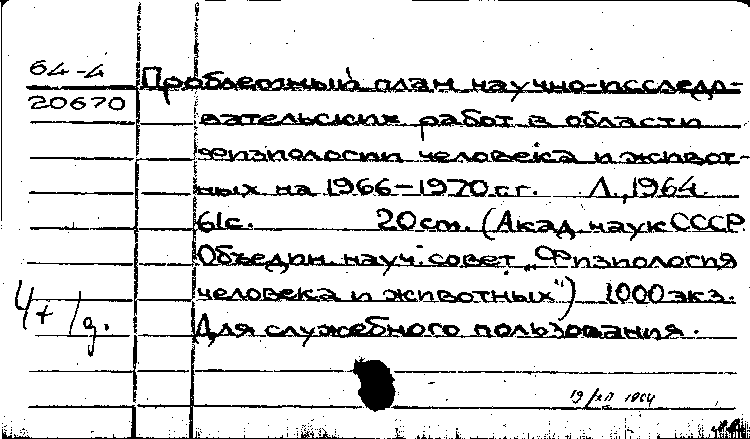 64-4
20670
Проблемный план научно-исследо-
вательских работ в области
физиологии человека и живот-
ных на 1966-1970 г.г. Л., 1964.
61 с. 20 см. (Акад. наук СССР.
Объедин. науч. совет „Физиология
человека и животных") 1000 экз.
4+1g.
Для служебного пользования.
19/XII 1964